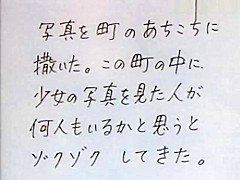 写真を町のあちこちに
撒いた。この町の中に、
少女の写真を見た人が
何人もいるかと思うと
ゾクゾク してきた。